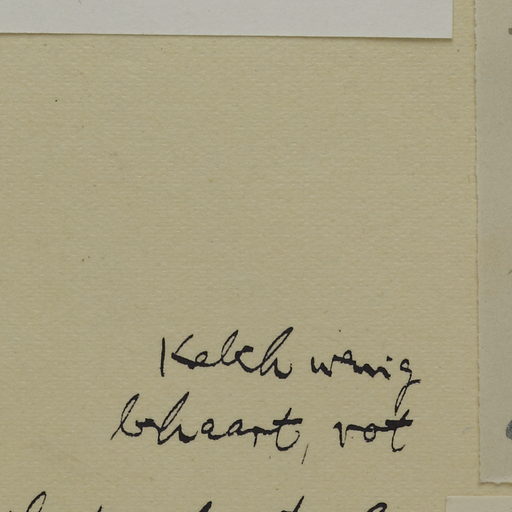 Kelch wenig
behaart, rot